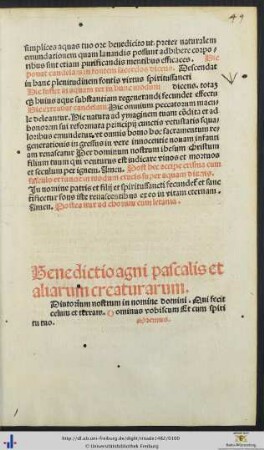 49
simplices aquas tuo ore benedicito ut preter naturalem
emundationem quam lauandis possunt adhibere corpo-
ribus sint etiam purificandis mentibus efficaces. Hic
ponat candelam in fontem sacerdos dicens. Descendat
in hanc plenitudinem fontis virtus spiritussancti
Hic suffet aquam ter in hunc modum dicens. totaq
q huius aque substantiam regenerandi fecundet effectu
Hic extrahat candelam. Hic omnium peccatorum macu-
le deleantur. Hic natura ad ymaginem tuam condita et ad
honorem sui reformata principij cunctis vetustatis squa-
loribus emundetur. ut omnis homo hoc sacramentum re-
generationis in gressus in vere innocentie nouam infantiam
renascatur Per dominum nostrum ihesum Christum
filium tuum qui venturus est iudicare viuos et mortuos
et seculum per ignem. Amen.
In nomine patris et filij et spiritussancti fecundet et sanc
tificetur fons iste renascentibus ex eo in vitam eternam.
Amen. Postea itur ad chorum cum letania.
Benedictio agni pascalis et
aliarum creaturarum.
Diutorium nostrum in nomine domini. Qui fecit
celum et terram. Dominus vobiscum Et cum spiri
tu tuo. Oremus.
http://dl.ub.uni-freiburg.de/diglit/rituale1482/0100
© Universitätsbibliothek Freiburg